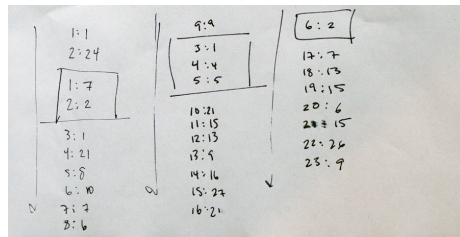 1:1
2:24
1:7
2:2
3:1
4:21
5:8
6:10
7:7
8:6
9:9
3:1
4:4
5:5
10:21
11:15
12:13
13:9
14:16
15:27
16:21
6:2
17:7
18:13
19:15
20:6
21:15
22:26
23:9